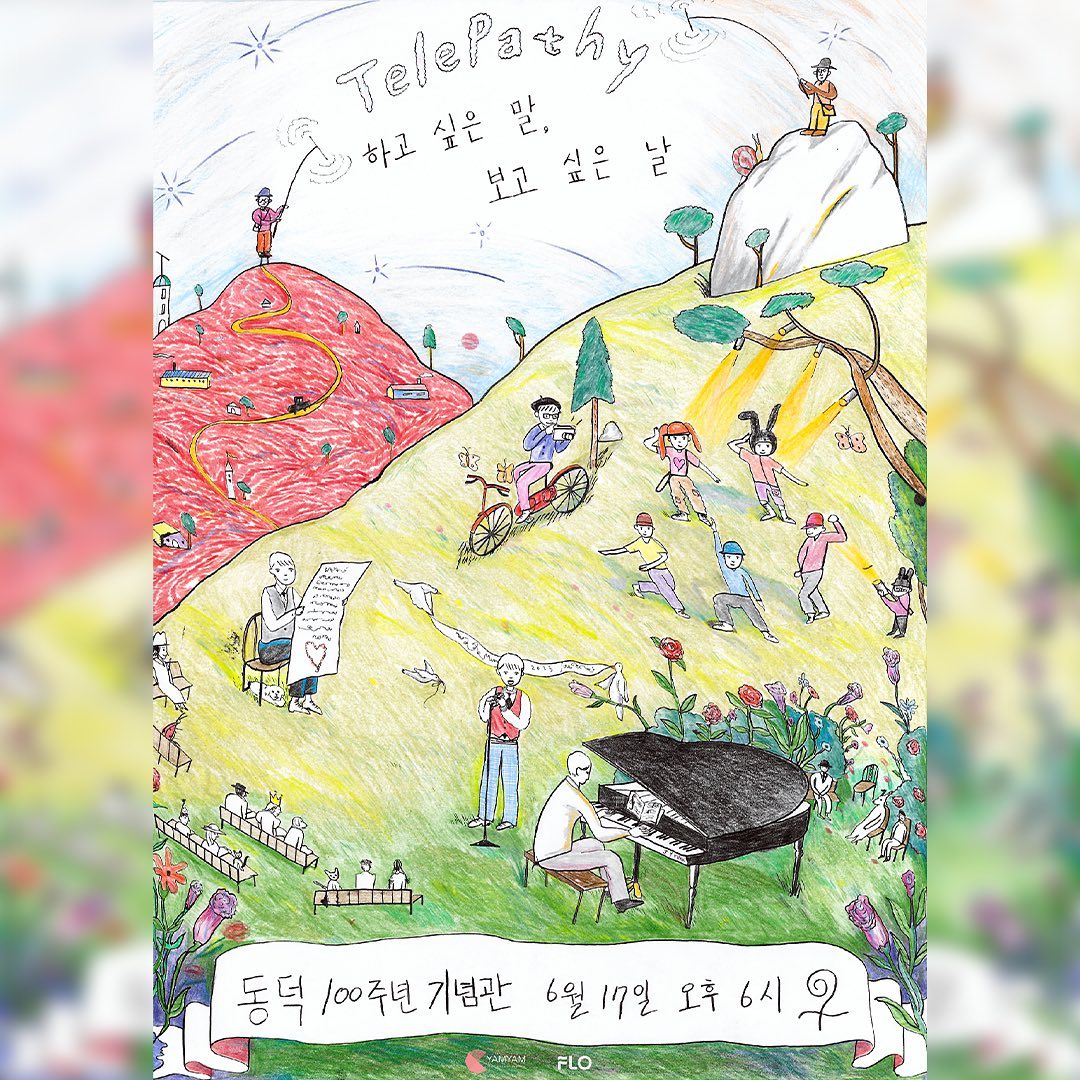 TelePathy
하고 싶은 말,
보고 싶은 날
2023
동덕 100주년 기념관 6월 17일 오후 6시
YAMYAM
FLO